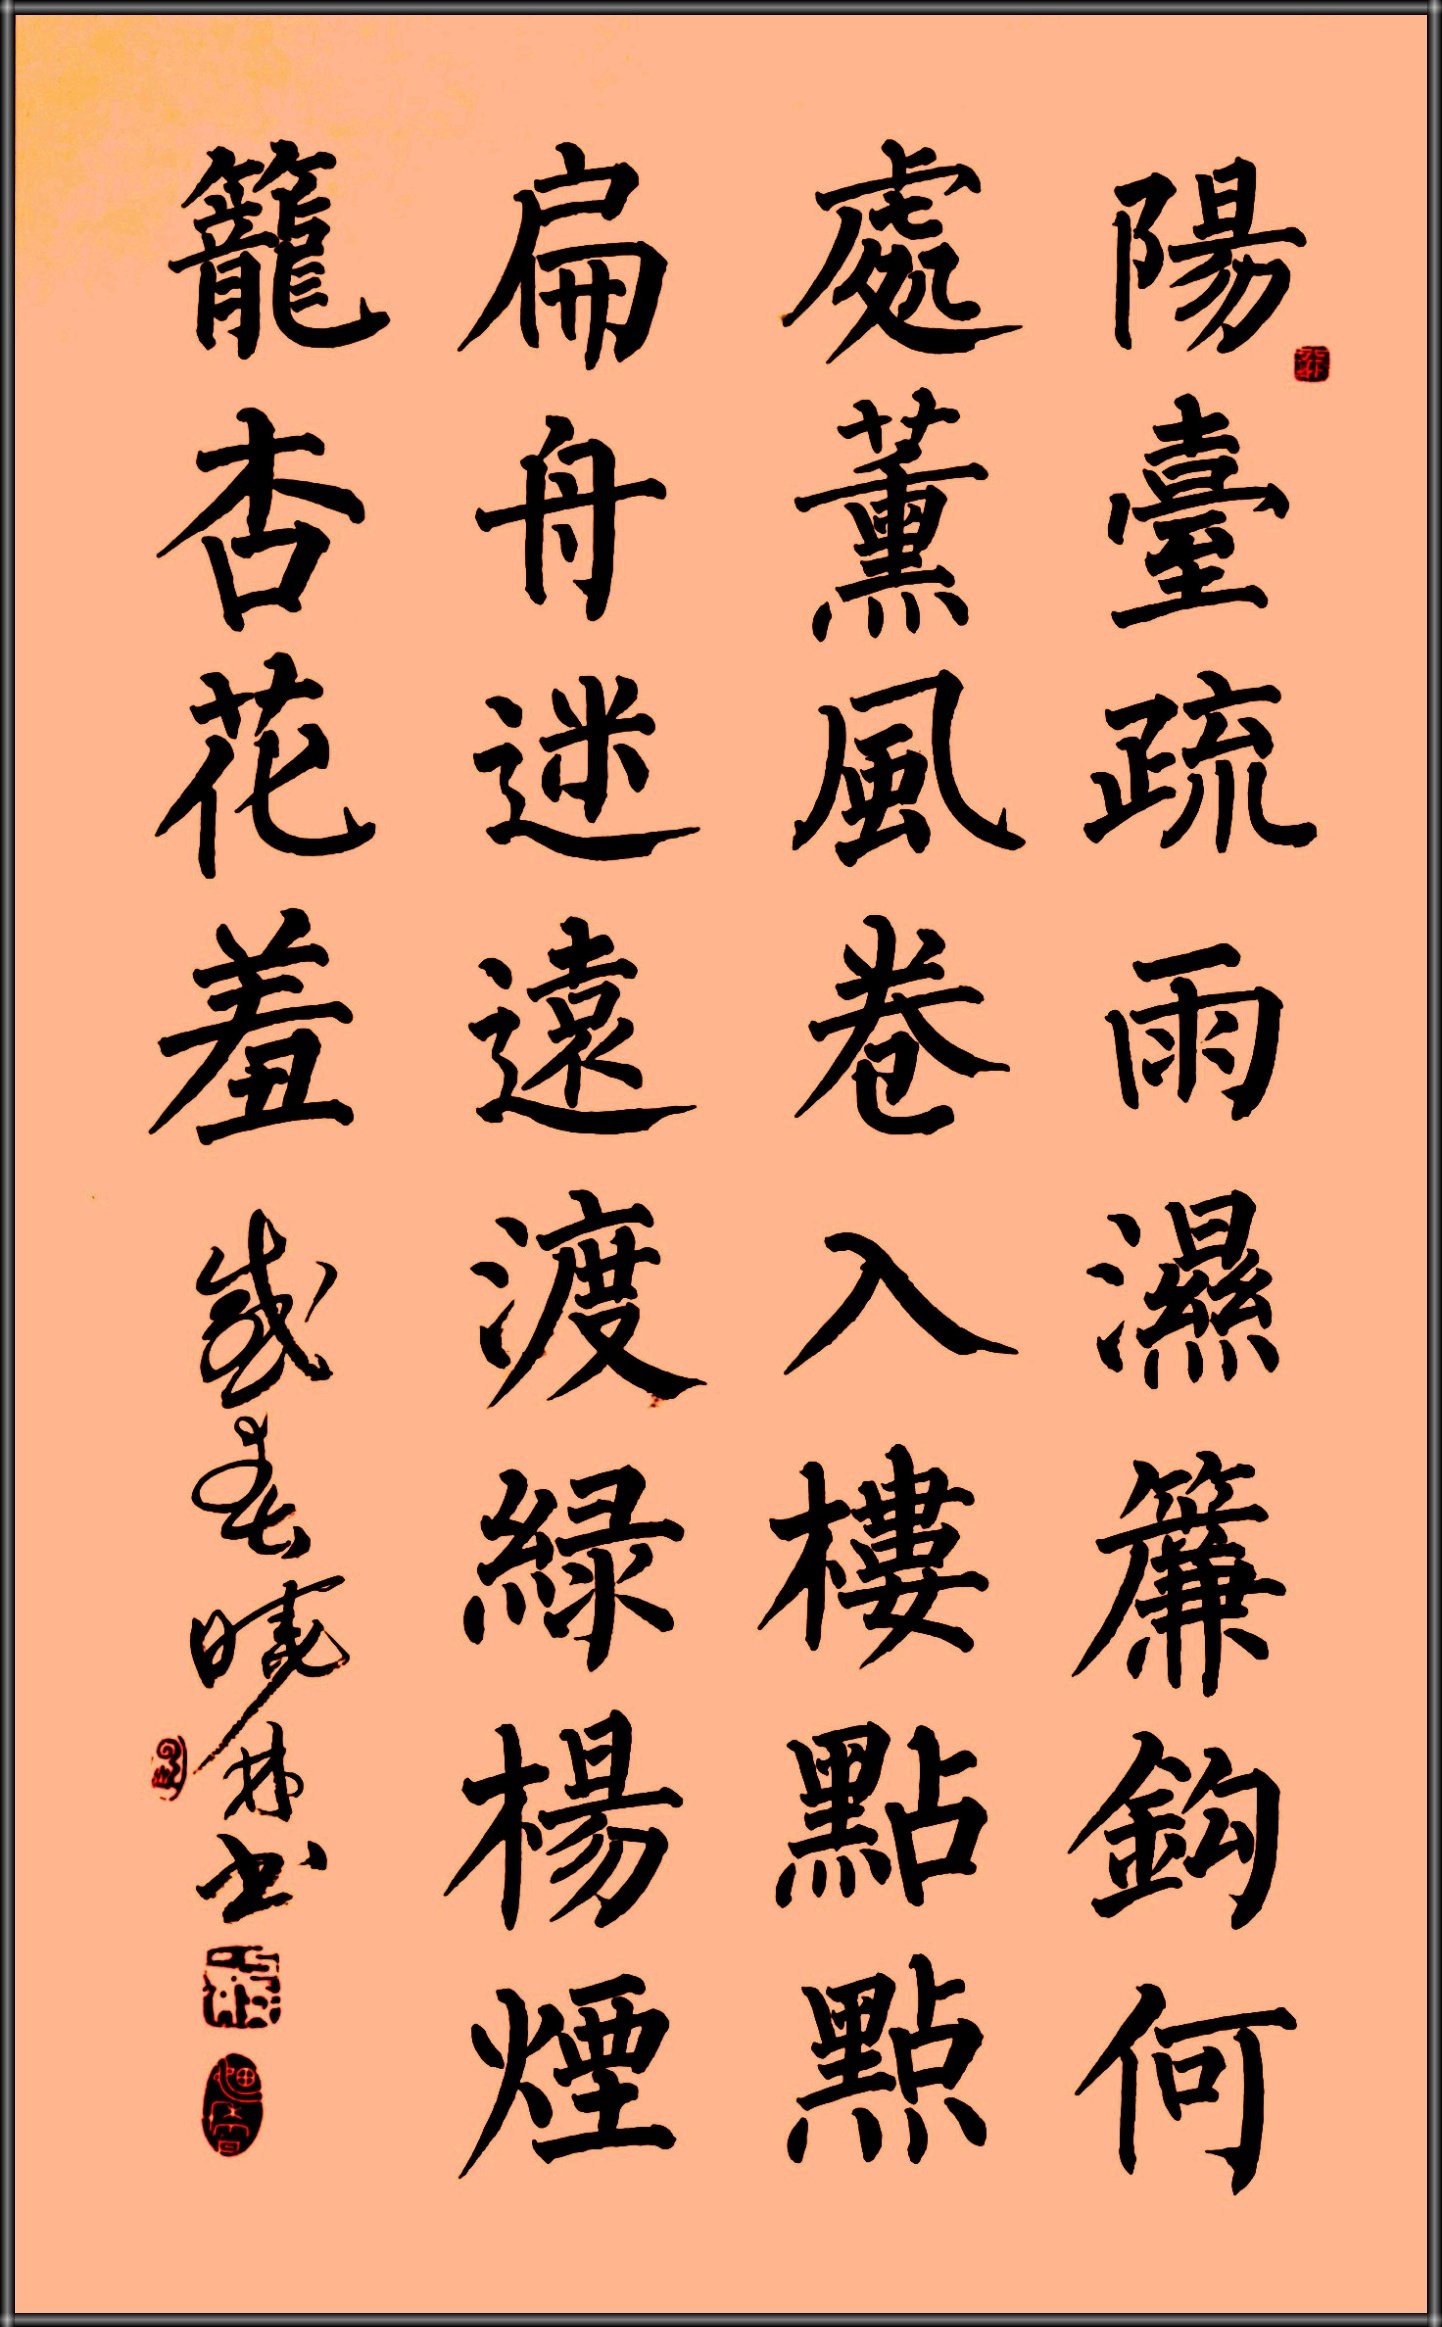 陽臺疏雨濕簾鈎何
處薰風卷入樓點點
扁舟迷遠渡綠楊煙
籠杏花羞 感春 曉林书